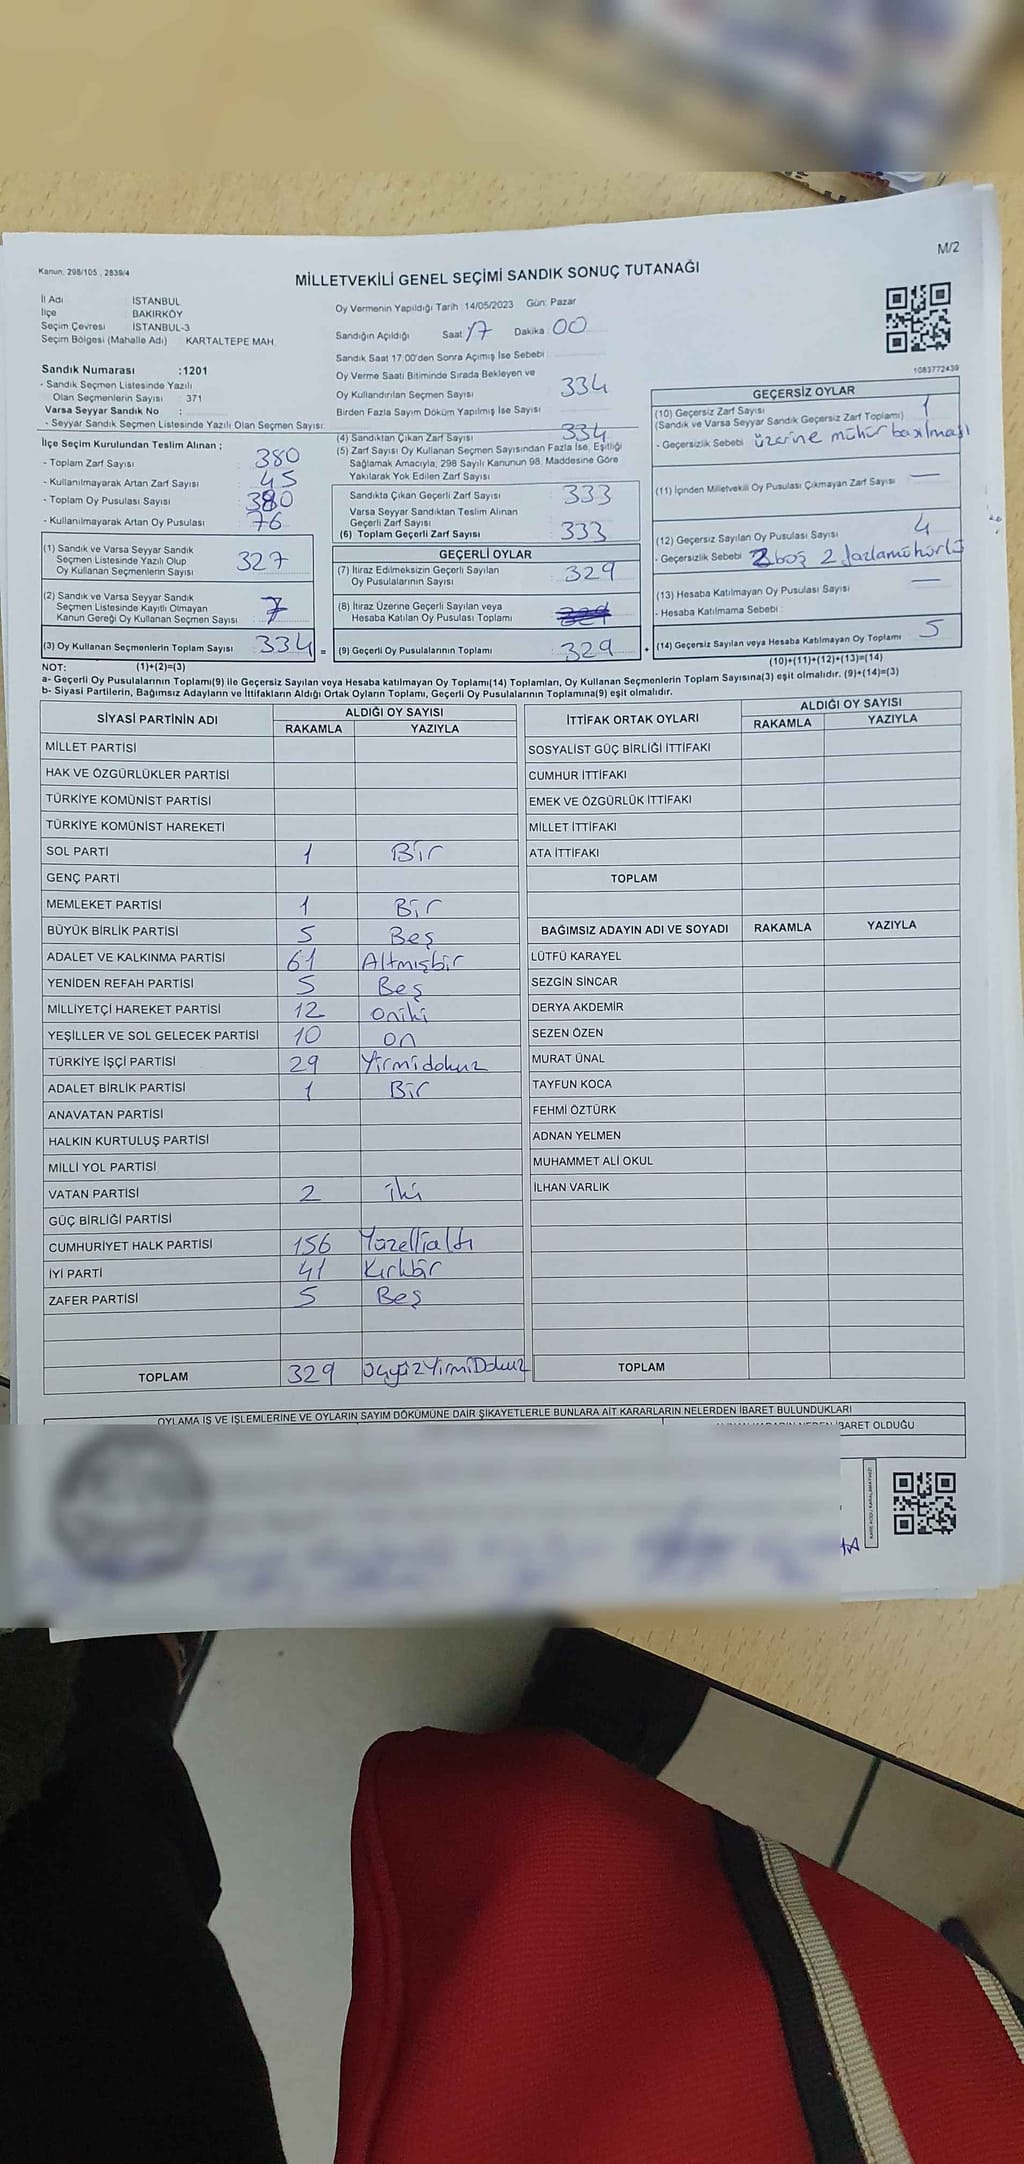 M/2
Kanun, 298/105 , 2839/4
MİLLETVEKİLİ GENEL SEÇİMİ SANDIK SONUÇ TUTANAĞI
İl Adı İSTANBUL
İlçe BAKIRKÖY
Seçim Çevresi İSTANBUL-3
Seçim Bölgesi (Mahalle Adı) KARTALTEPE MAH.
Sandık Numarası :1201
- Sandık Seçmen Listesinde Yazılı
Olan Seçmenlerin Sayısı : 371
Varsa Seyyar Sandık No :
- Seyyar Sandık Seçmen Listesinde Yazılı Olan Seçmen Sayısı:
İlçe Seçim Kurulundan Teslim Alınan ;
- Toplam Zarf Sayısı : 380
- Kullanılmayarak Artan Zarf Sayısı : 45
- Toplam Oy Pusulası Sayısı : 380
- Kullanılmayarak Artan Oy Pusulası : 76
(1) Sandık ve Varsa Seyyar Sandık
Seçmen Listesinde Yazılı Olup
Oy Kullanan Seçmenlerin Sayısı : 327
(2) Sandık ve Varsa Seyyar Sandık
Seçmen Listesinde Kayıtlı Olmayan
Kanun Gereği Oy Kullanan Seçmen Sayısı : 7
(3) Oy Kullanan Seçmenlerin Toplam Sayısı : 334 =
Oy Vermenin Yapıldığı Tarih :14/05/2023 Gün: Pazar
Sandığın Açıldığı Saat 17 Dakika 00
Sandık Saat 17:00'den Sonra Açımış İse Sebebi :
Oy Verme Saati Bitiminde Sırada Bekleyen ve
Oy Kullandırılan Seçmen Sayısı : 334
Birden Fazla Sayım Döküm Yapılmış İse Sayısı :
(4) Sandıktan Çıkan Zarf Sayısı : 334
(5) Zarf Sayısı Oy Kullanan Seçmen Sayısından Fazla İse, Eşitliği
Sağlamak Amacıyla, 298 Sayılı Kanunun 98. Maddesine Göre
Yakılarak Yok Edilen Zarf Sayısı :
Sandıkta Çıkan Geçerli Zarf Sayısı : 333
Varsa Seyyar Sandıktan Teslim Alınan
Geçerli Zarf Sayısı :
(6) Toplam Geçerli Zarf Sayısı : 333
GEÇERLİ OYLAR
(7) İtiraz Edilmeksizin Geçerli Sayılan
Oy Pusulalarının Sayısı : 329
(8) İtiraz Üzerine Geçerli Sayılan veya
Hesaba Katılan Oy Pusulası Toplamı :
(9) Geçerli Oy Pusulalarının Toplamı : 329 +
1083772439
GEÇERSİZ OYLAR
(10) Geçersiz Zarf Sayısı 1
(Sandık ve Varsa Seyyar Sandık Geçersiz Zarf Toplamı)
- Geçersizlik Sebebi : üzerine mühür basılması
(11) İçinden Milletvekili Oy Pusulası Çıkmayan Zarf Sayısı : —
(12) Geçersiz Sayılan Oy Pusulası Sayısı : 4
- Geçersizlik Sebebi : 2 boş 2 fazla mühürlü
(13) Hesaba Katılmayan Oy Pusulası Sayısı : —
- Hesaba Katılmama Sebebi :
(14) Geçersiz Sayılan veya Hesaba Katılmayan Oy Toplamı : 5
(10)+(11)+(12)+(13)=(14)
NOT: (1)+(2)=(3)
a- Geçerli Oy Pusulalarının Toplamı(9) ile Geçersiz Sayılan veya Hesaba katılmayan Oy Toplamı(14) Toplamları, Oy Kullanan Seçmenlerin Toplam Sayısına(3) eşit olmalıdır. (9)+(14)=(3)
b- Siyasi Partilerin, Bağımsız Adayların ve İttifakların Aldığı Ortak Oyların Toplamı, Geçerli Oy Pusulalarının Toplamına(9) eşit olmalıdır.
SİYASİ PARTİNİN ADI ALDIĞI OY SAYISI
RAKAMLA YAZIYLA
MİLLET PARTİSİ
HAK VE ÖZGÜRLÜKLER PARTİSİ
TÜRKİYE KOMÜNİST PARTİSİ
TÜRKİYE KOMÜNİST HAREKETİ
SOL PARTİ 1 Bir
GENÇ PARTİ
MEMLEKET PARTİSİ 1 Bir
BÜYÜK BİRLİK PARTİSİ 5 Beş
ADALET VE KALKINMA PARTİSİ 61 Altmışbir
YENİDEN REFAH PARTİSİ 5 Beş
MİLLİYETÇİ HAREKET PARTİSİ 12 oniki
YEŞİLLER VE SOL GELECEK PARTİSİ 10 on
TÜRKİYE İŞÇİ PARTİSİ 29 Yirmidokuz
ADALET BİRLİK PARTİSİ 1 Bir
ANAVATAN PARTİSİ
HALKIN KURTULUŞ PARTİSİ
MİLLİ YOL PARTİSİ
VATAN PARTİSİ 2 iki
GÜÇ BİRLİĞİ PARTİSİ
CUMHURİYET HALK PARTİSİ 156 Yüzellialtı
İYİ PARTİ 41 Kırkbir
ZAFER PARTİSİ 5 Beş
TOPLAM 329 üçyüzYirmiDokuz
İTTİFAK ORTAK OYLARI ALDIĞI OY SAYISI
RAKAMLA YAZIYLA
SOSYALİST GÜÇ BİRLİĞİ İTTİFAKI
CUMHUR İTTİFAKI
EMEK VE ÖZGÜRLÜK İTTİFAKI
MİLLET İTTİFAKI
ATA İTTİFAKI
TOPLAM
BAĞIMSIZ ADAYIN ADI VE SOYADI RAKAMLA YAZIYLA
LÜTFÜ KARAYEL
SEZGİN SİNCAR
DERYA AKDEMİR
SEZEN ÖZEN
MURAT ÜNAL
TAYFUN KOCA
FEHMİ ÖZTÜRK
ADNAN YELMEN
MUHAMMET ALİ OKUL
İLHAN VARLIK
TOPLAM
OYLAMA İŞ VE İŞLEMLERİNE VE OYLARIN SAYIM DÖKÜMÜNE DAİR ŞİKAYETLERLE BUNLARA AİT KARARLARIN NELERDEN İBARET BULUNDUKLARI
İBARET OLDUĞU